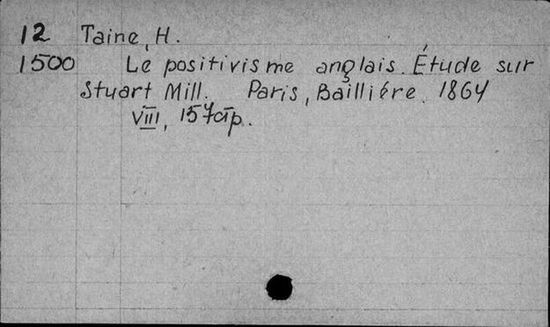 12 Taine, H.
1500 Le positivisme anglais. Étude sur
Stuart Mill. Paris, Bailliére. 1864
VIII, 157 p.